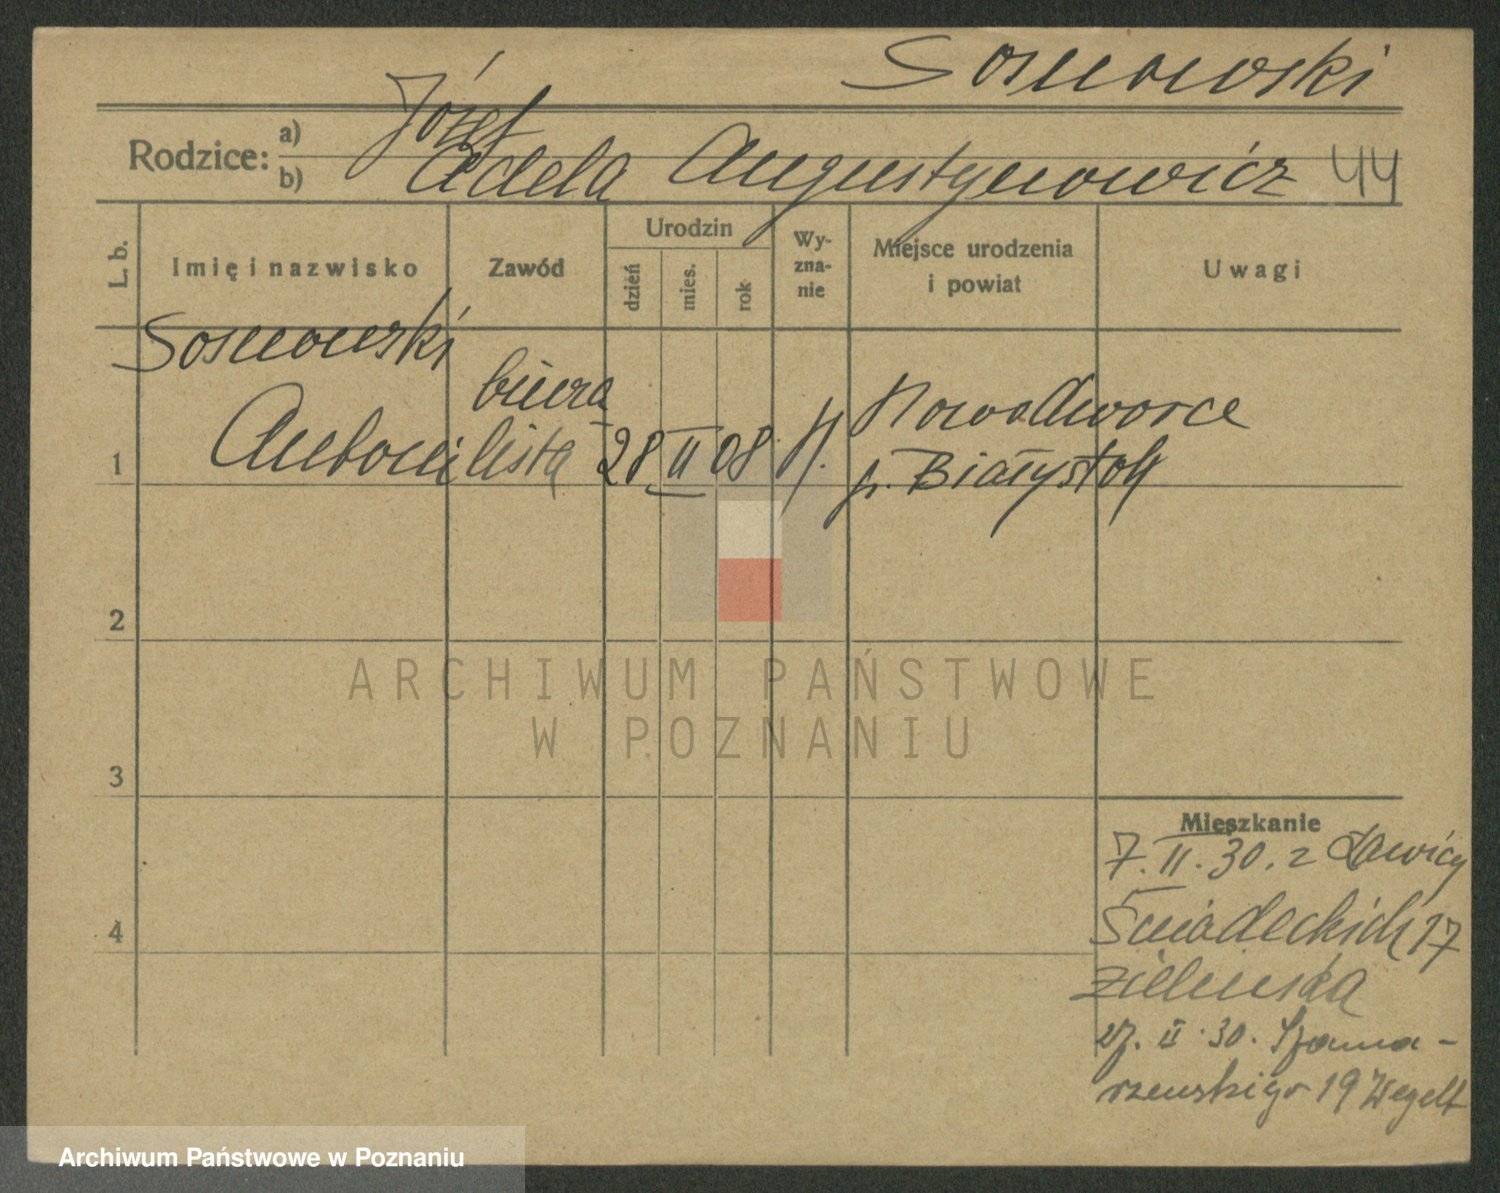 Sosnowski
Rodzice:
a) Józef
b) Adela Augustynowicz 44
L. b.
Imię i nazwisko
Zawód
Urodzin
dzień
mies.
rok
Wy-
zna-
nie
Miejsce urodzenia
i powiat
Uwagi
Sosnowski
Antoni
biura
lista
28 II 08
Nowodworce
p. Białystok
1
2
3
4
ARCHIWUM PAŃSTWOWE
W POZNANIU
Mieszkanie
7. II. 30. z Ławicy
Śniadeckich 17
Zielińska
II. 30. Szama-
rzewskiego 19
Archiwum Państwowe w Poznaniu